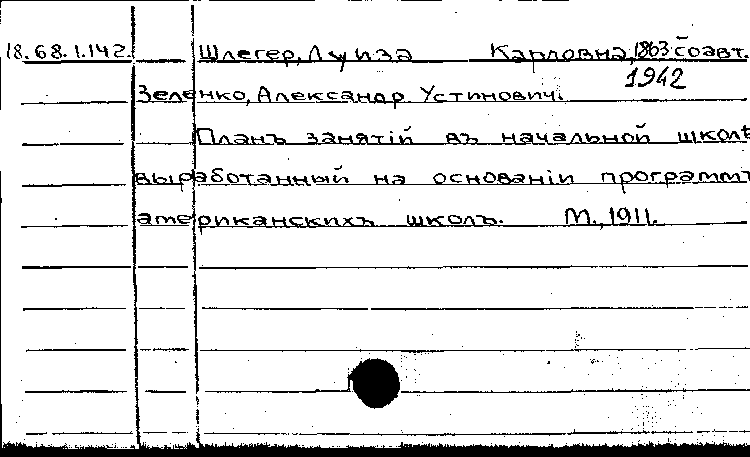 18.68.1.142. Шлегер, Луиза Карловна, 1863 соавт.
1942
Зеленко, Александр Устинович.
Планъ занятій въ начальной школѣ
выработанный на основаніи программъ
американскихъ школъ. М., 1911.